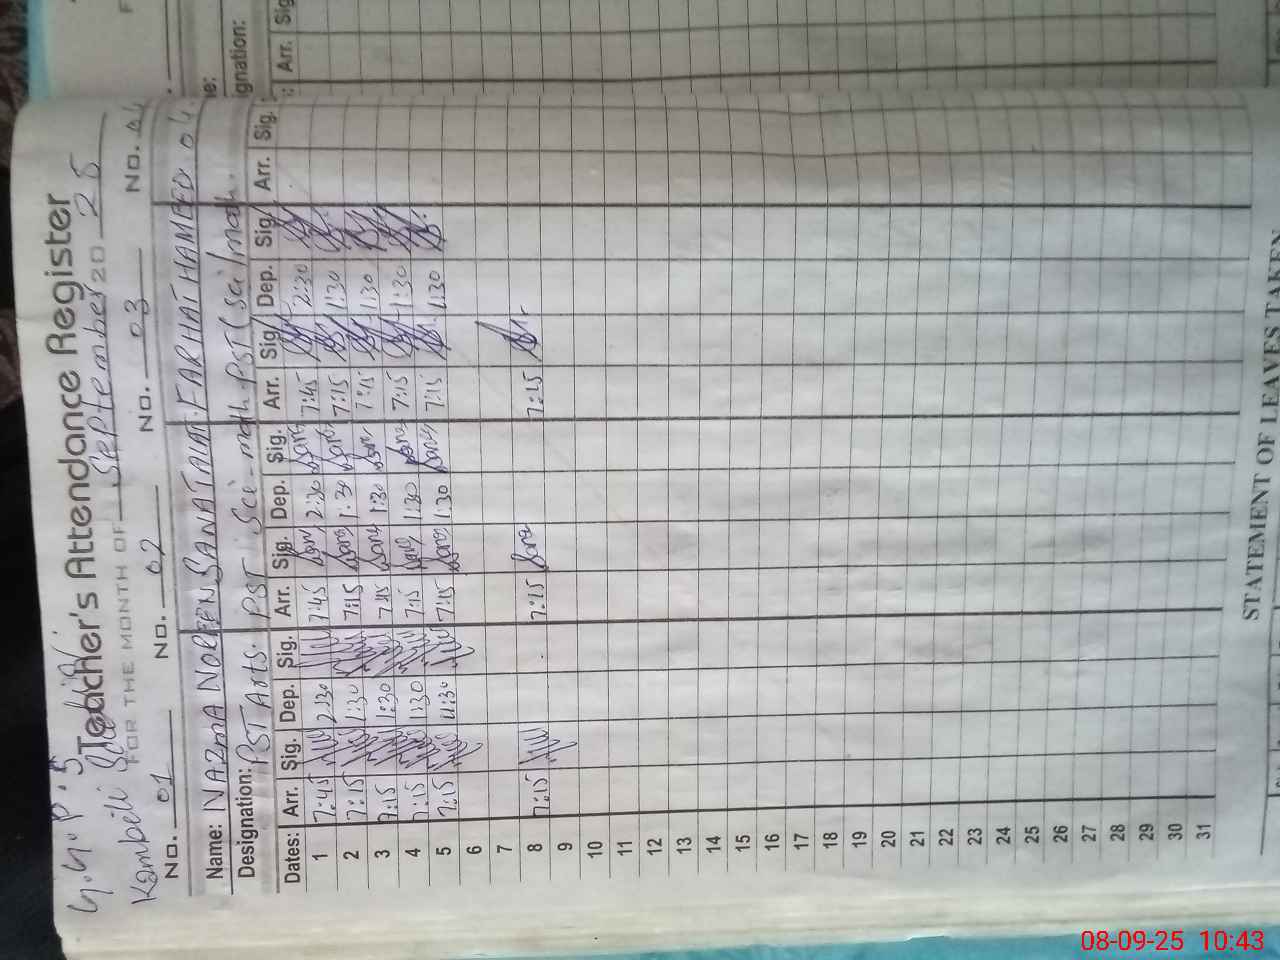 G.G.P.S
Teacher's Attendance Register
Kambeli
FOR THE MONTH OF September 20 25
No. 01 No. 02 No. 03 No. 04
Name: NAZMA NOREEN SANA TALAT FARHAT HAMEED 04.
Designation: PST Arts. PST Sci-math PST (Sci/math.
Dates: Arr. Sig. Dep. Sig. Arr. Sig. Dep. Sig. Arr. Sig. Dep. Sig. Arr. Sig.
1 7:45 2:30 7:45 2:30 7:45 2:30
2 7:15 1:30 7:15 1:30 7:15 1:30
3 7:15 1:30 7:15 1:30 7:15 1:30
4 7:15 1:30 7:15 1:30 7:15 1:30
5 7:15 11:30 7:15 1:30 7:15 1:30
6
7
8 7:15 7:15 7:15
9
10
11
12
13
14
15
16
17
18
19
20
21
22
23
24
25
26
27
28
29
30
31
STATEMENT OF LEAVES TAKEN
gnation:
Arr. Sig
08-09-25 10:43